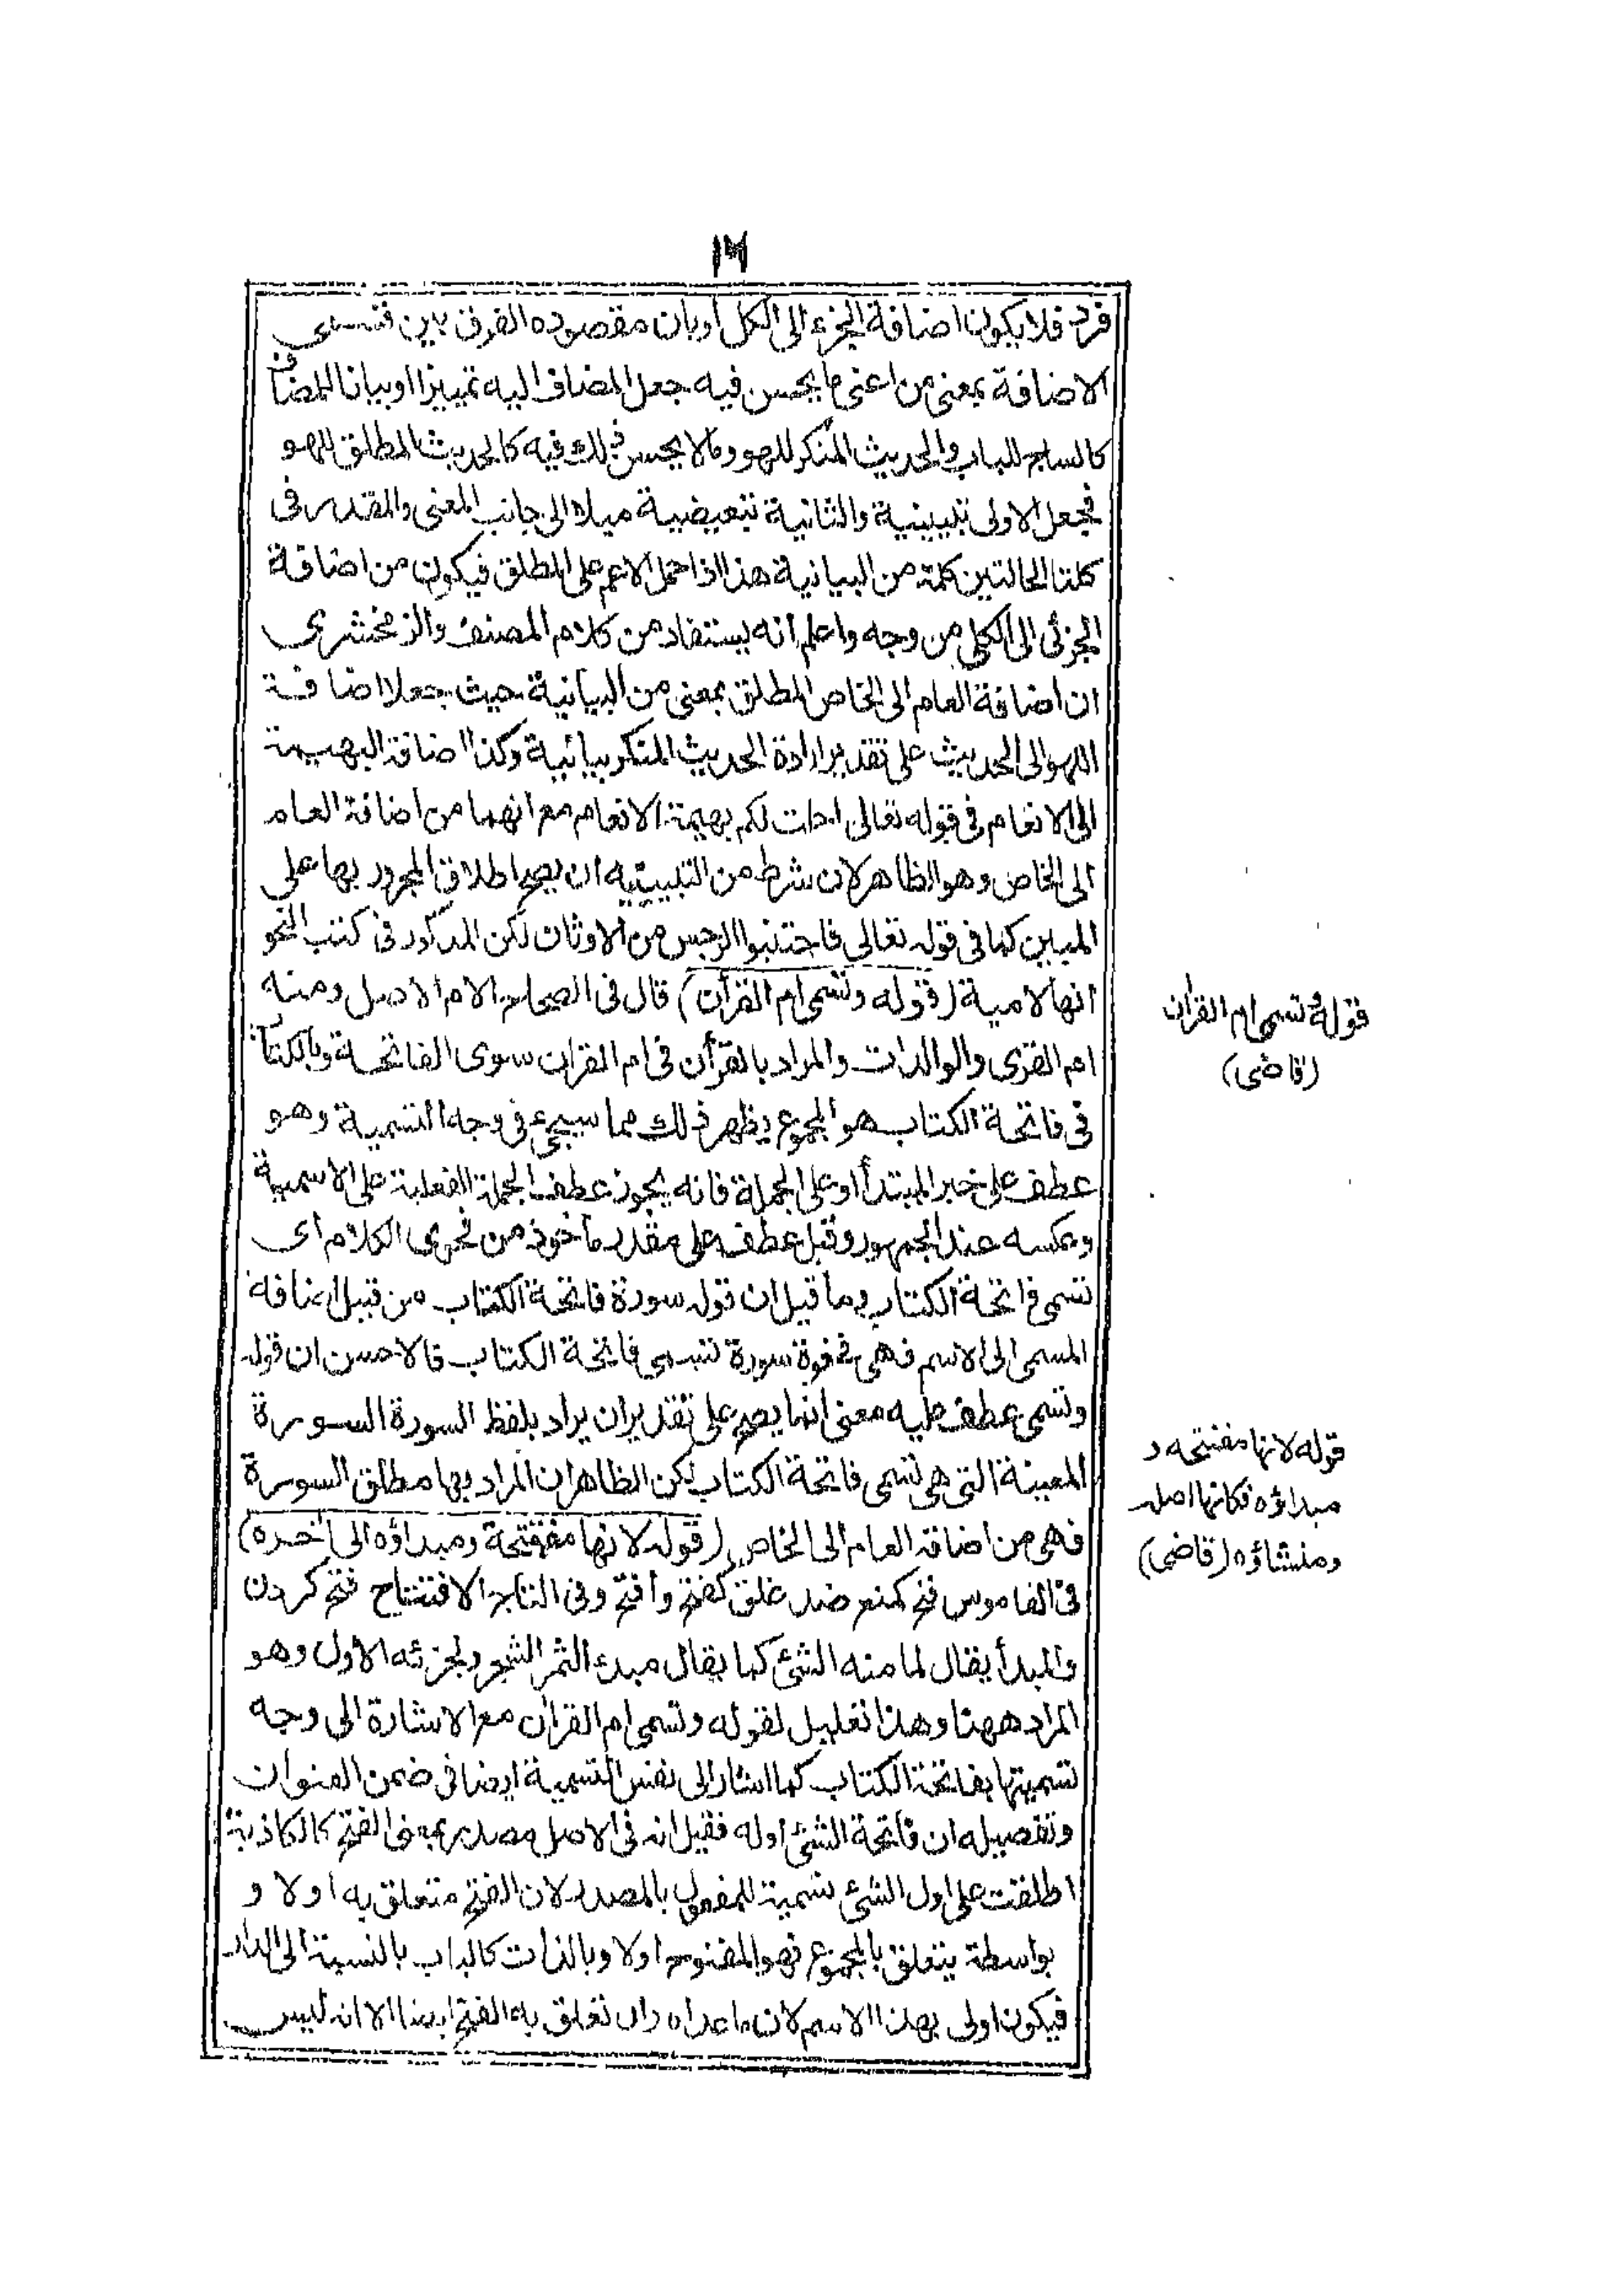 ١٦
فرد فلا يكون اضافة الجزء الى الكل أو بان مقصوده الفرق بين قسمى
الاضافة بمعنى من اعنى ما يحسن فيه جعل المضاف اليه تمييزا او بيانا للمضاف
كالساج للباب والحديث المنكر للهو وما لا يحسن ذلك فيه كالحديث المطلق للهو
فجعل الاولى تبيينية والثانية تبعيضية ميلا الى جانب المعنى والمقدر فى
كلتا الحالتين كلمة من البيانية هذا اذا حمل الاعم على المطلق فيكون من اضافة
الجزئى الى الكلى من وجه واعلم انه يستفاد من كلام المصنف والزمخشرى
ان اضافة العام الى الخاص المطلق بمعنى من البيانية حيث جعلا اضافة
اللهو الى الحديث على تقدير ارادة الحديث المنكر بيانية وكذا اضافة البهيمة
الى الانعام فى قوله تعالى احلت لكم بهيمة الانعام مع انهما من اضافة العام
الى الخاص وهو الظاهر لان شرط من التبيينيه ان يصح اطلاق المجرور بها على
المبين كما فى قوله تعالى فاجتنبوا الرجس من الاوثان لكن المذكور فى كتب النحو
انها لامية (قوله وتسمى ام القرآن) قال فى الصحاح الام الاصل ومنه
ام القرى والوالدات والمراد بالقرآن فى ام القران سوى الفاتحة وبالكتاب
فى فاتحة الكتاب هو المجموع يظهر ذلك مما سيجىء فى وجه التسمية وهو
عطف على خبر المبتدأ او على الجملة فانه يجوز عطف الجملة الفعلية على الاسمية
وعكسه عند الجمهور وقيل عطف على مقدر مأخوذ من فحوى الكلام أى
تسمى فاتحة الكتاب وما قيل ان قوله سورة فاتحة الكتاب من قبيل اضافة
المسمى الى الاسم فهى فى قوة سورة تسمى فاتحة الكتاب فالاحسن ان قوله
وتسمى عطف عليه معنى انما يصح على تقدير ان يراد بلفظ السورة السورة
المعينة التى هى تسمى فاتحة الكتاب لكن الظاهر ان المراد بها مطلق السورة
فهى من اضافة العام الى الخاص (قوله لانها مفتتحة ومبداؤه الى أخره)
فى القاموس فتح كمنع ضد غلق كفتح وأفتح وفى التاج الافتتاح فتح كردن
والمبدأ يقال لما منه الشئ كما يقال مبدء الثمر الشجر ولجزئه الاول وهو
المراد ههنا وهذا تعليل لقوله وتسمى ام القران مع الاشارة الى وجه
تسميتها بفاتحة الكتاب كما اشار الى نفس التسمية ايضا فى ضمن العنوان
وتفصيله ان فاتحة الشئ اوله فقيل انه فى الاصل مصدر بمعنى الفتح كالكاذبة
اطلقت على اول الشئ تسمية للمفعول بالمصدر لان الفتح متعلق به اولا و
بواسطة يتعلق بالمجموع فهو المفتوح اولا وبالذات كالباب بالنسبة الى الدار
فيكون اولى بهذا الاسم لان ما عداه وان تعلق به الفتح ايضا الا انه ليس
قوله وتسمى ام القران
(قاضى)
قوله لانها مفتتحه و
مبداؤه فكانها اصله
ومنشاؤه (قاضى)